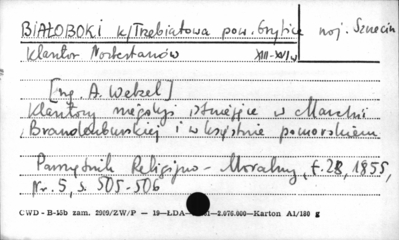 BIAŁOBOKI k/Trzebiatowa pow. Gryfice woj. Szczecin
Klasztor Norbertanów XIII-XVI w
[ng. A. Wetzel]
Klasztory istniejące w Marchii
Brandenburskiej i w księstwie pomorskiem
Pamiętnik Religijno-Moralny, t.28, 1855,
Nr. 5, s. 505-506
CWD - B-15b zam. 2909/ZW/P - 19-LDA- -2.076.000-Karton A1/180 g